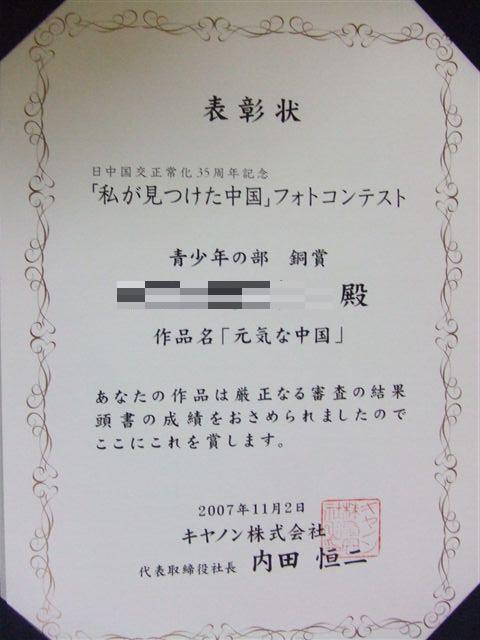 表彰状
日中国交正常化35周年記念
「私が見つけた中国」フォトコンテスト
青少年の部 銅賞
殿
作品名「元気な中国」
あなたの作品は厳正なる審査の結果
頭書の成績をおさめられましたので
ここにこれを賞します。
2007年11月2日
キヤノン株式会社
代表取締役社長 内田 恒二